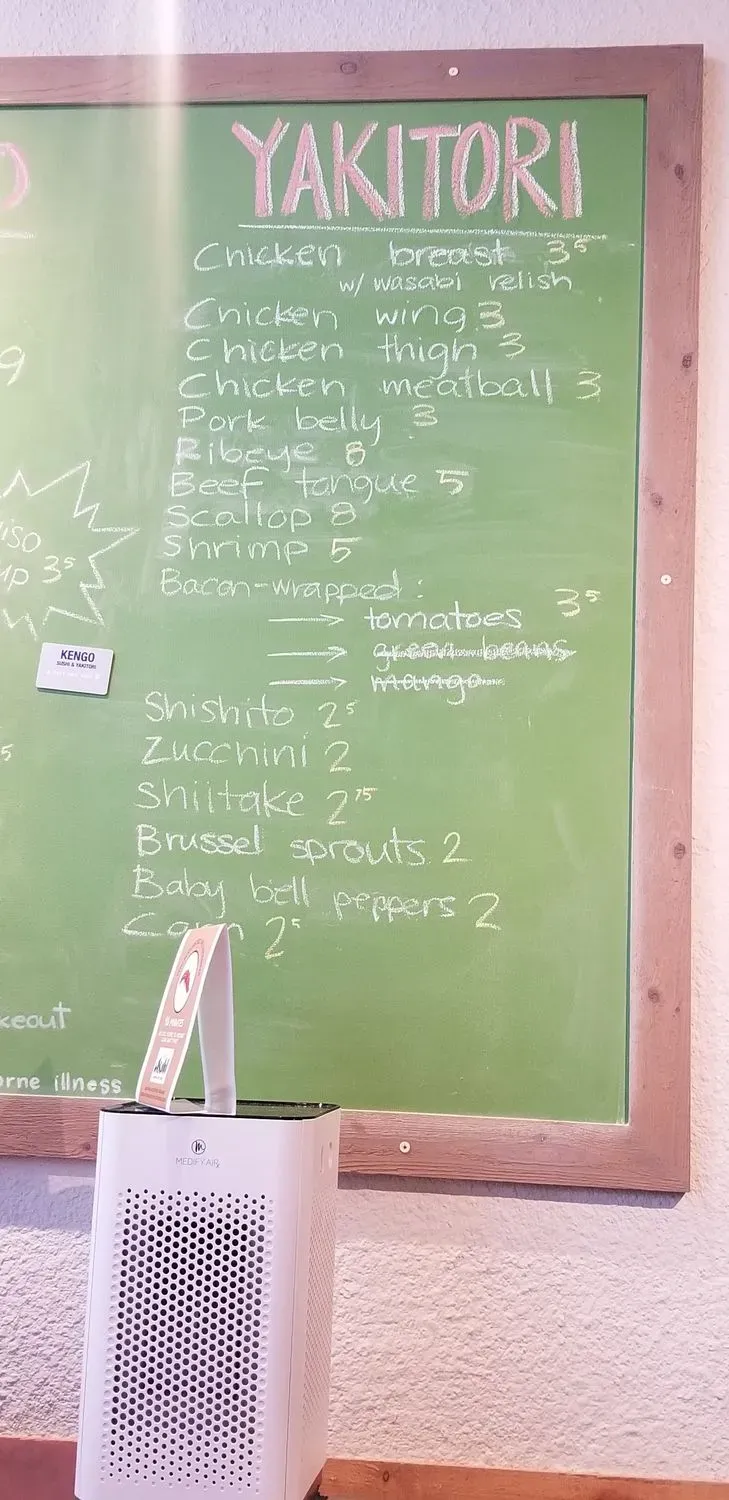 YAKITORI
Chicken breast 3⁵
w/ wasabi relish
Chicken wing 3
Chicken thigh 3
Chicken meatball 3
Pork belly 3
Ribeye 8
Beef tongue 5
Scallop 8
Shrimp 5
Bacon-wrapped:
→ tomatoes 3⁵
→ green beans
→ mango
Shishito 2⁵
Zucchini 2
Shiitake 2⁷⁵
Brussel sprouts 2
Baby bell peppers 2
2⁵
9
3⁵
KENGO
SUSHI & YAKITORI
5
illness
Asahi
MEDIFY AIR